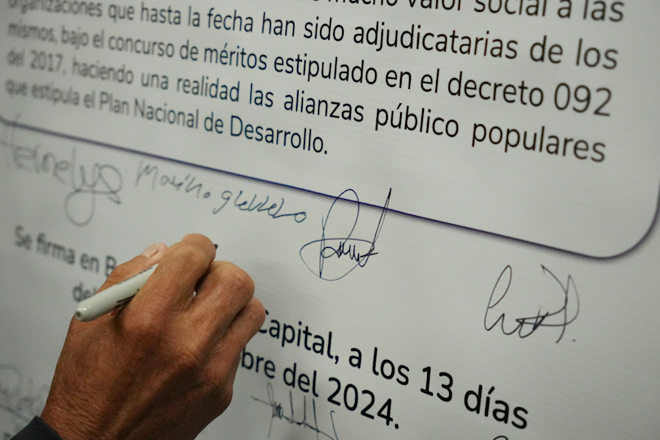 mucho valor social a las
organizaciones que hasta la fecha han sido adjudicatarias de los
mismos, bajo el concurso de méritos estipulado en el decreto 092
del 2017, haciendo una realidad las alianzas público populares
que estipula el Plan Nacional de Desarrollo.
Marino guerrero
Se firma en B
Capital, a los 13 días
de
bre del 2024.